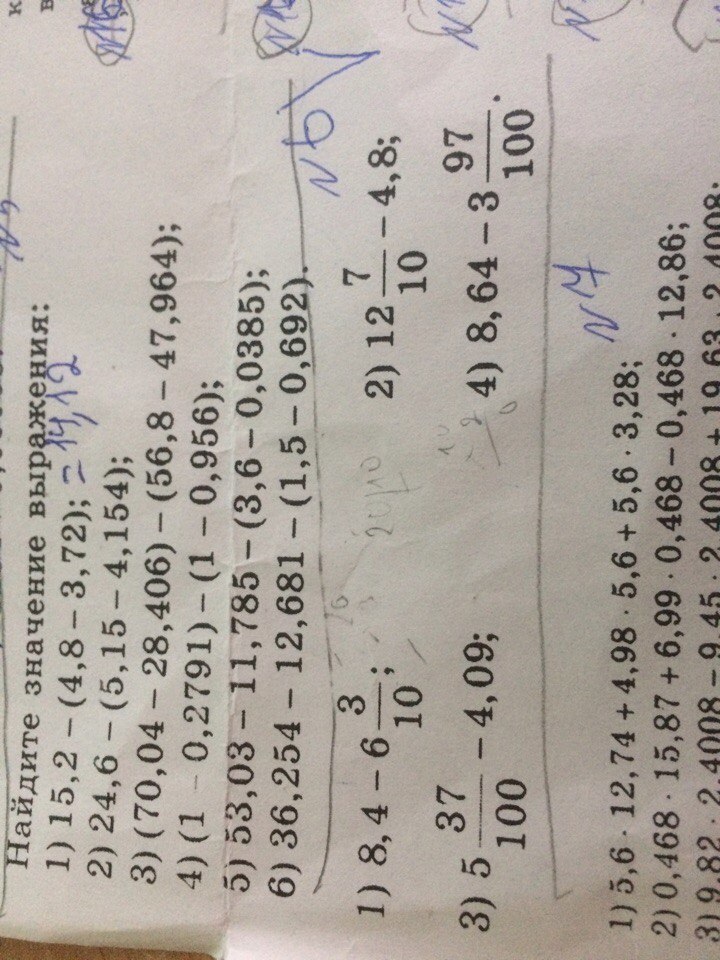 Найдите значение выражения:
1) 15,2 – (4,8 – 3,72); = 14,12
2) 24,6 – (5,15 – 4,154);
3) (70,04 – 28,406) – (56,8 – 47,964);
4) (1 – 0,2791) – (1 – 0,956);
5) 53,03 – 11,785 – (3,6 – 0,0385);
6) 36,254 – 12,681 – (1,5 – 0,692).
N6
1) 8,4 – 6 3/10; 2) 12 7/10 – 4,8;
3) 5 37/100 – 4,09; 4) 8,64 – 3 97/100.
N7
1) 5,6 · 12,74 + 4,98 · 5,6 + 5,6 · 3,28;
2) 0,468 · 15,87 + 6,99 · 0,468 – 0,468 · 12,86;
3) 9,82 · 2,4008 – 9,45 · 2,4008 + 19,63 · 2,4008;